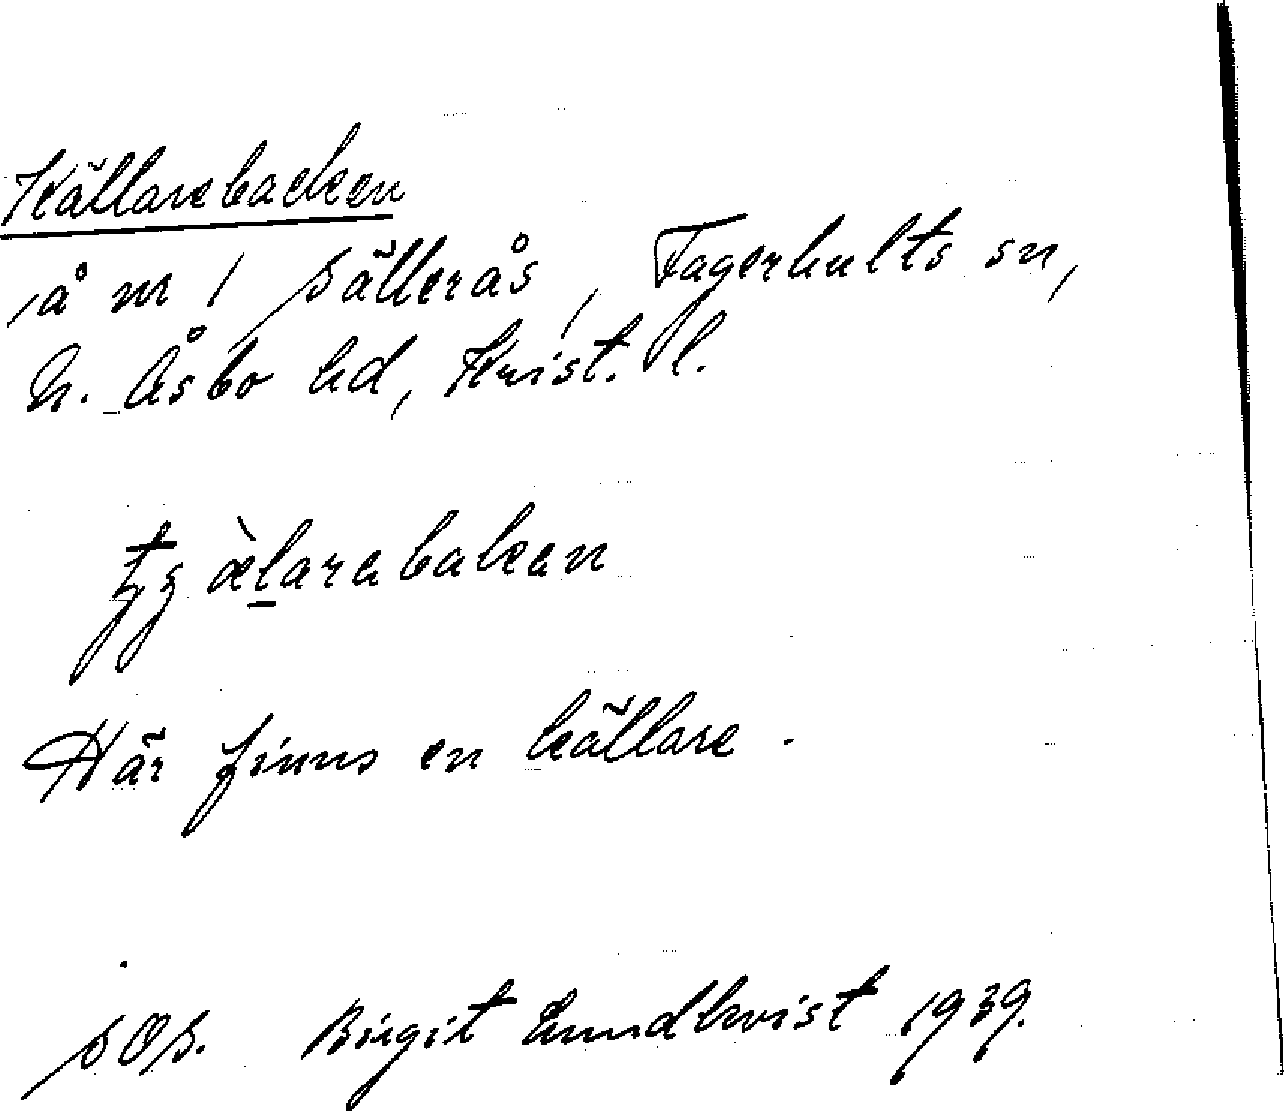 Källarebacken
å m / Sällerås, Fagerhults sn,
N. Åsbo hd, Krist. l.
Här finns en källare.
SOS. Birgit Lundkvist 1939.